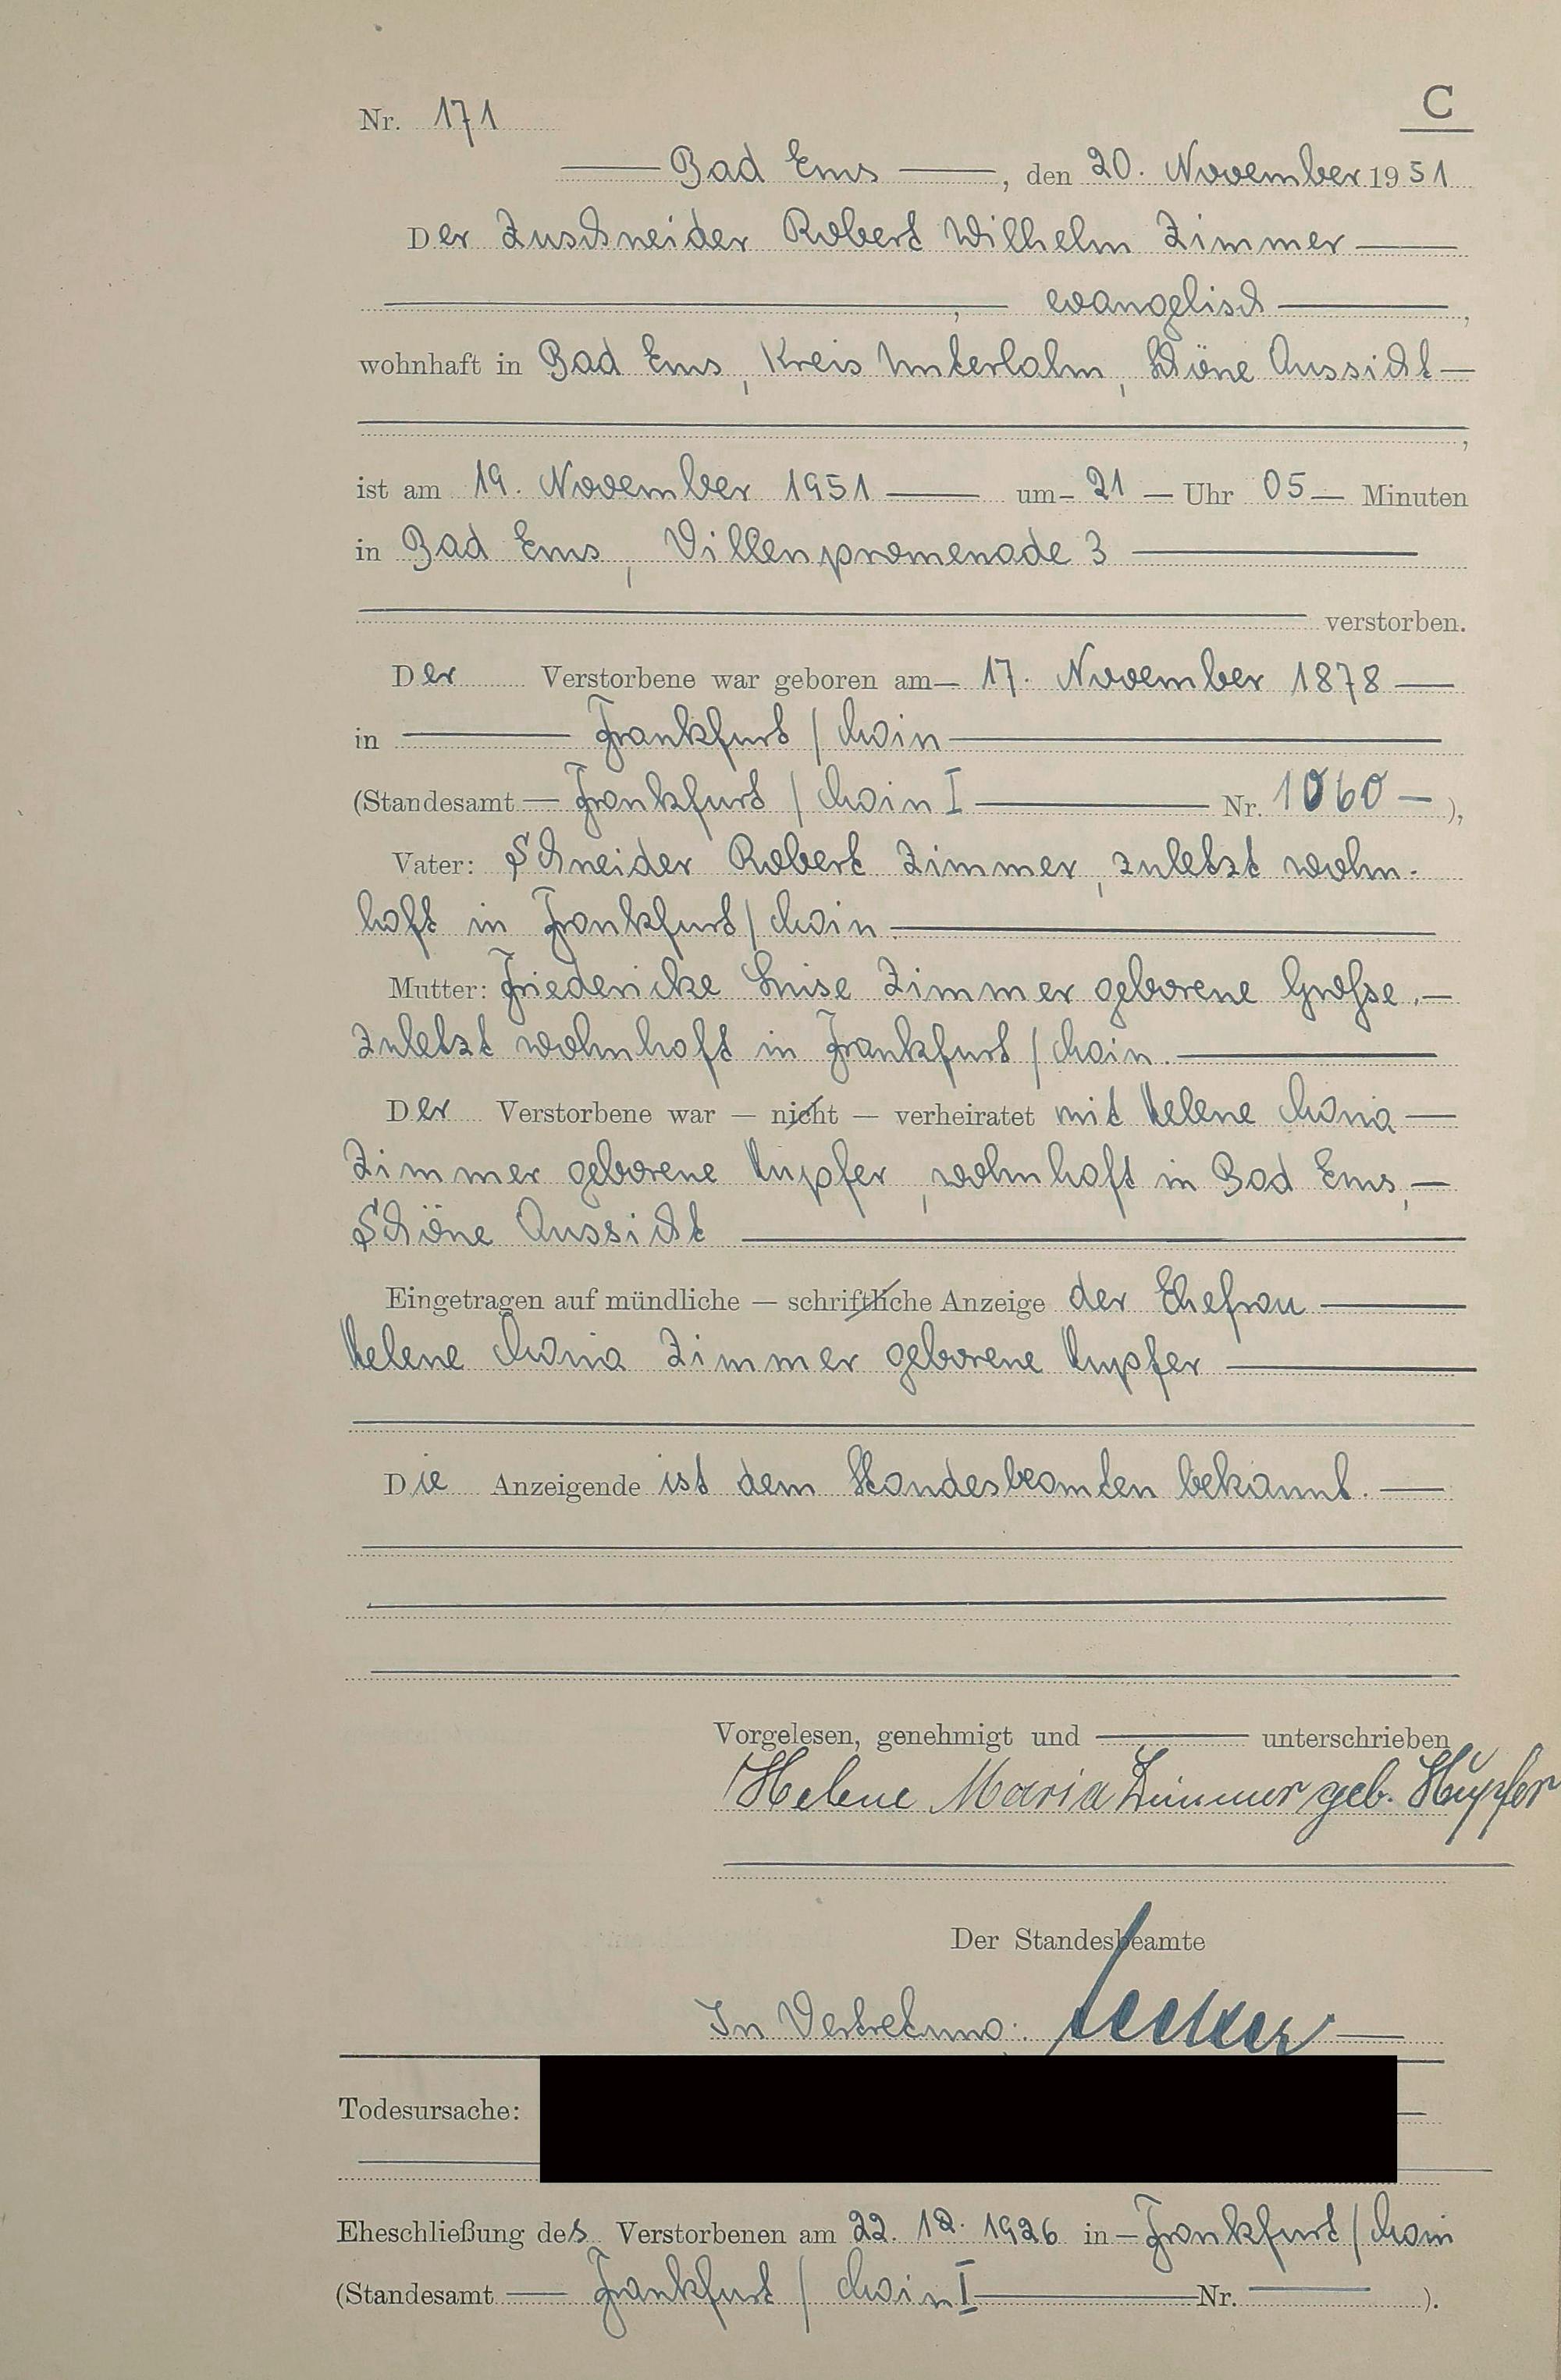 C
Nr. 171
Bad Ems, den 20. November 1951
Der Zuschneider Robert Wilhelm Zimmer
, evangelisch,
wohnhaft in Bad Ems, Kreis Unterlahn, Schöne Aussicht
,
ist am 19. November 1951 um 21 Uhr 05 Minuten
in Bad Ems, Villenpromenade 3
verstorben.
Der Verstorbene war geboren am 17. November 1878
in Frankfurt / Main
(Standesamt Frankfurt / Main I Nr. 1060 ),
Vater: Schneider Robert Zimmer, zuletzt wohn-
haft in Frankfurt / Main
Mutter: Friedericke Luise Zimmer geborene Große,
zuletzt wohnhaft in Frankfurt / Main.
Der Verstorbene war — nicht — verheiratet mit Helene Maria
Zimmer geborene Hupfer, wohnhaft in Bad Ems,
Schöne Aussicht
Eingetragen auf mündliche — schriftliche Anzeige der Ehefrau
Helene Maria Zimmer geborene Hupfer
Die Anzeigende ist dem Standesbeamten bekannt.
Vorgelesen, genehmigt und unterschrieben
Helene Maria Zimmer geb. Hupfer
Der Standesbeamte
In Vertretung:
Todesursache:
Eheschließung des Verstorbenen am 22. 12. 1926 in Frankfurt / Main
(Standesamt Frankfurt / Main I Nr. ).